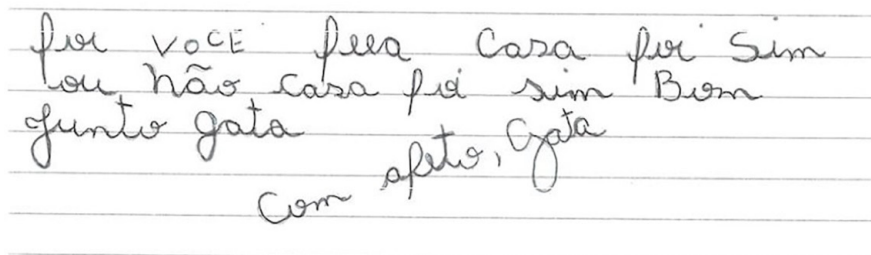 por VOCE para Casa foi Sim
ou não casa foi sim Bom
junto gata
com afeto, Gata